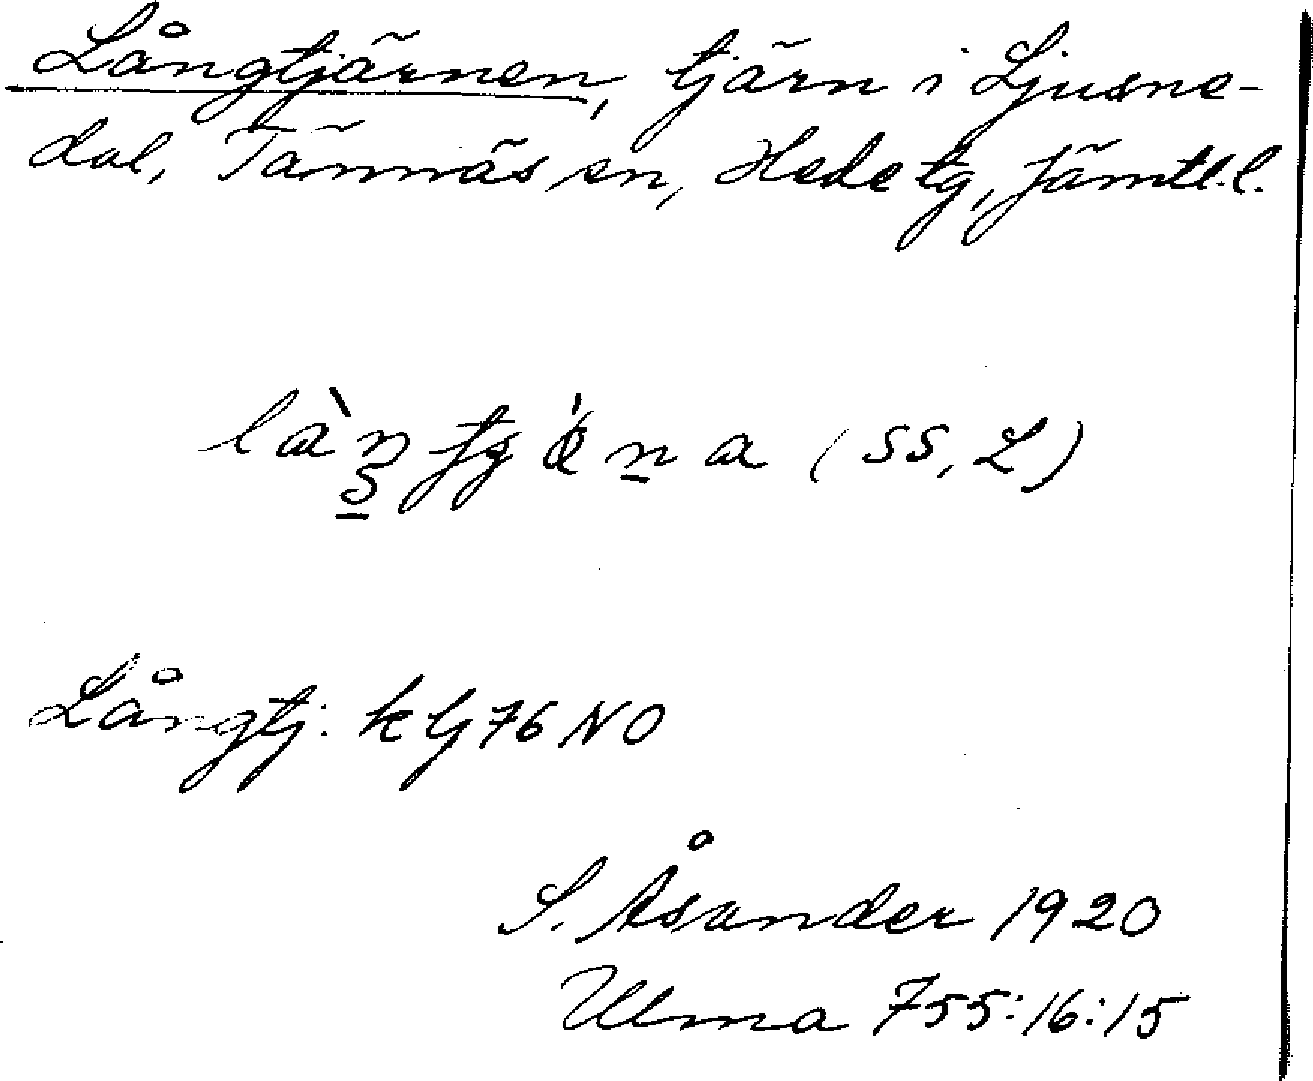 Långtjärnen, tjärn i Ljusne-
dal, Tännäs sn, Hede tg, Jämtl.l.
(SS, L)
Långtj. kbl 76 NO
S. Åsander 1920
Ulma 755:16:15